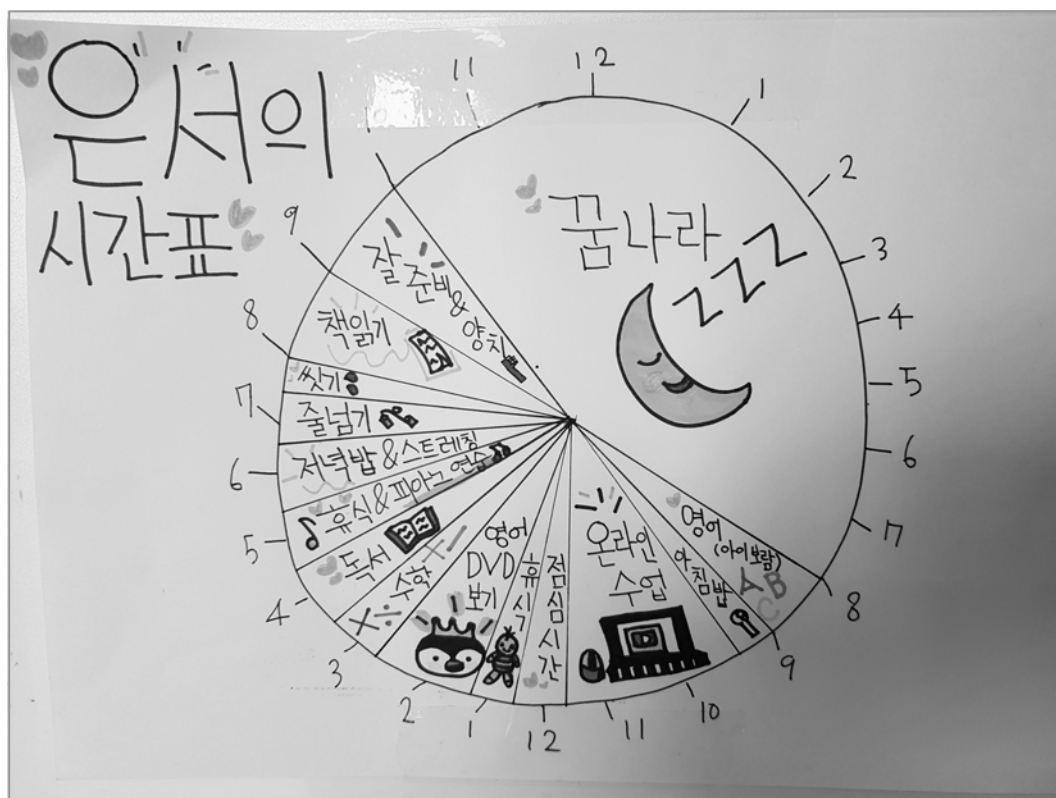 은서의
시간표
12
1
2
3
4
5
6
7
8
9
10
11
12
1
2
3
4
5
6
7
8
9
11
꿈나라
ZZZ
영어
(아이보람)
A B
C
아침밥
온라인
수업
점심시간
휴식
영어
DVD
보기
수학
×÷
독서
휴식&피아노 연습
저녁밥 & 스트레칭
줄넘기
씻기
책읽기
잘 준비 &
양치